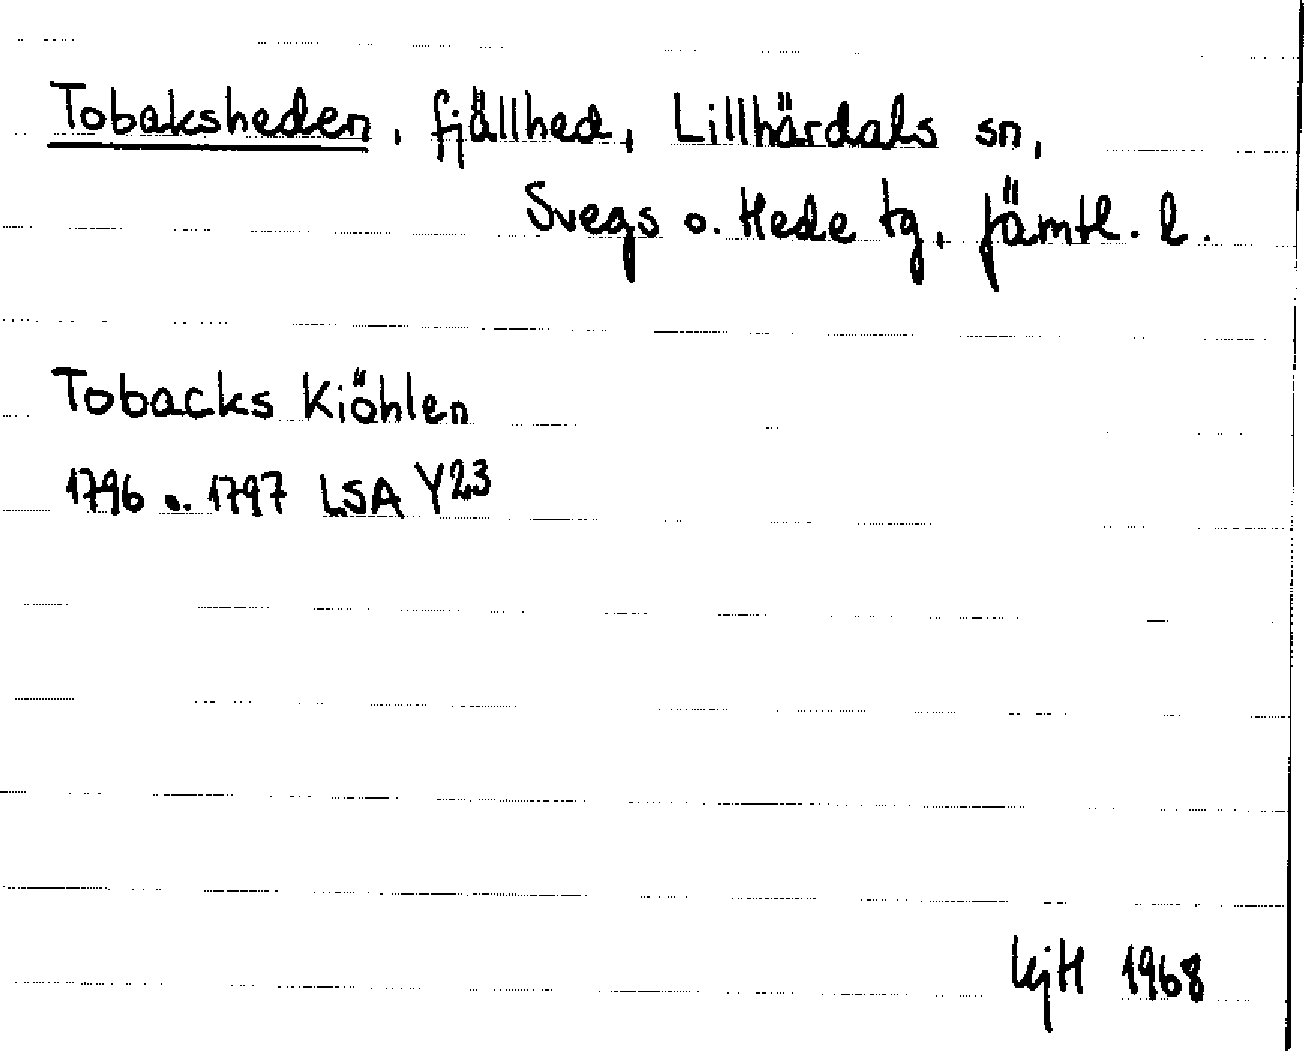 Tobaksheden, fjällhed, Lillhärdals sn,
Svegs o. Hede tg, Jämtl. l.
Tobacks Kiöhlen
1796 o. 1797 LSA Y23
KjH 1968